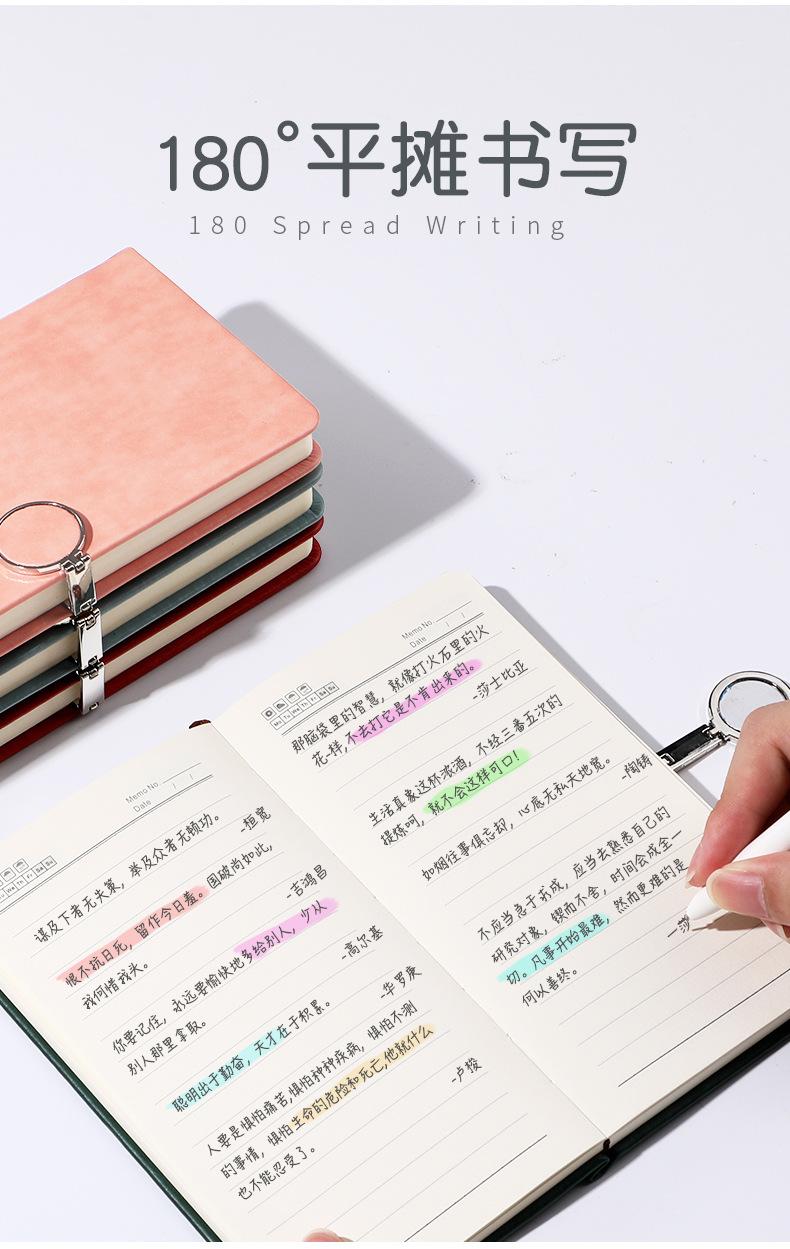 180°平摊书写
180 Spread Writing
Memo No.
Date / /
Mo Tu We Th Fr Sa Su
那脑袋里的智慧，就像打火石里的火
花一样,不去打它是不肯出来的。
-莎士比亚
生活真象这杯浓酒，不经三番五次的
提炼呵，就不会这样可口！
如烟往事俱忘却，心底无私天地宽。
-陶铸
不应当急于求成，应当去熟悉自己的
研究对象，锲而不舍，时间会成全一
切。凡事开始最难，然而更难的是
何以善终。
-莎
Memo No.
Date / /
We Th Fr Sa Su
谋及下者无失策，举及众者无顿功。
-桓宽
恨不抗日死，留作今日羞。国破尚如此，
我何惜我头。
-吉鸿昌
你要记住，永远要愉快地多给别人，少从
别人那里拿取。
-高尔基
聪明出于勤奋，天才在于积累。
-华罗庚
人要是惧怕痛苦,惧怕种种疾病，惧怕不测
的事情，惧怕生命的危险和死亡,他就什么
也不能忍受了。
-卢梭